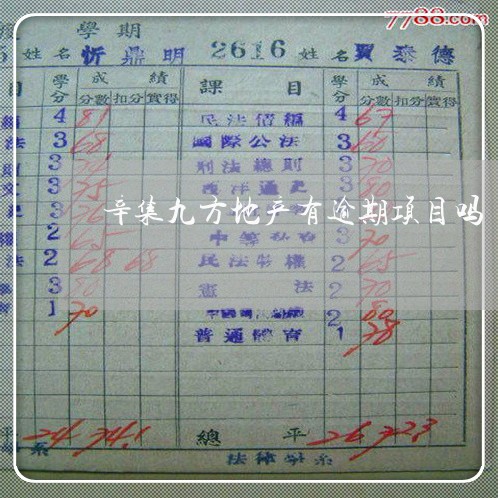 7788.com
學期
姓名 忻鼎明 2616 姓名 賈泰德
目 學分 成績 課目 學分 成績
分數 扣分 實得 分數 扣分 實得
4 81 民法債編 4 67
法 3 68 國際公法 3 60
3 刑法總則 3 70
3 75 西洋通史 3 80
3 76 3
辛集九方地产有逾期项目吗
2 65 3 70
法 2 68 68 民法物權 2 65
3 80 憲法 2 70
1 70 2 80
普通體育 1 78
平 24 74.1 總平 26 72.3
系 法律學系